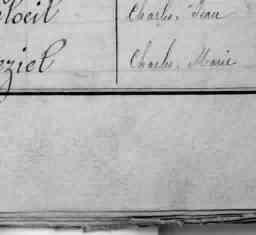 loeil Charles, Jean
eziel Charles, Marie